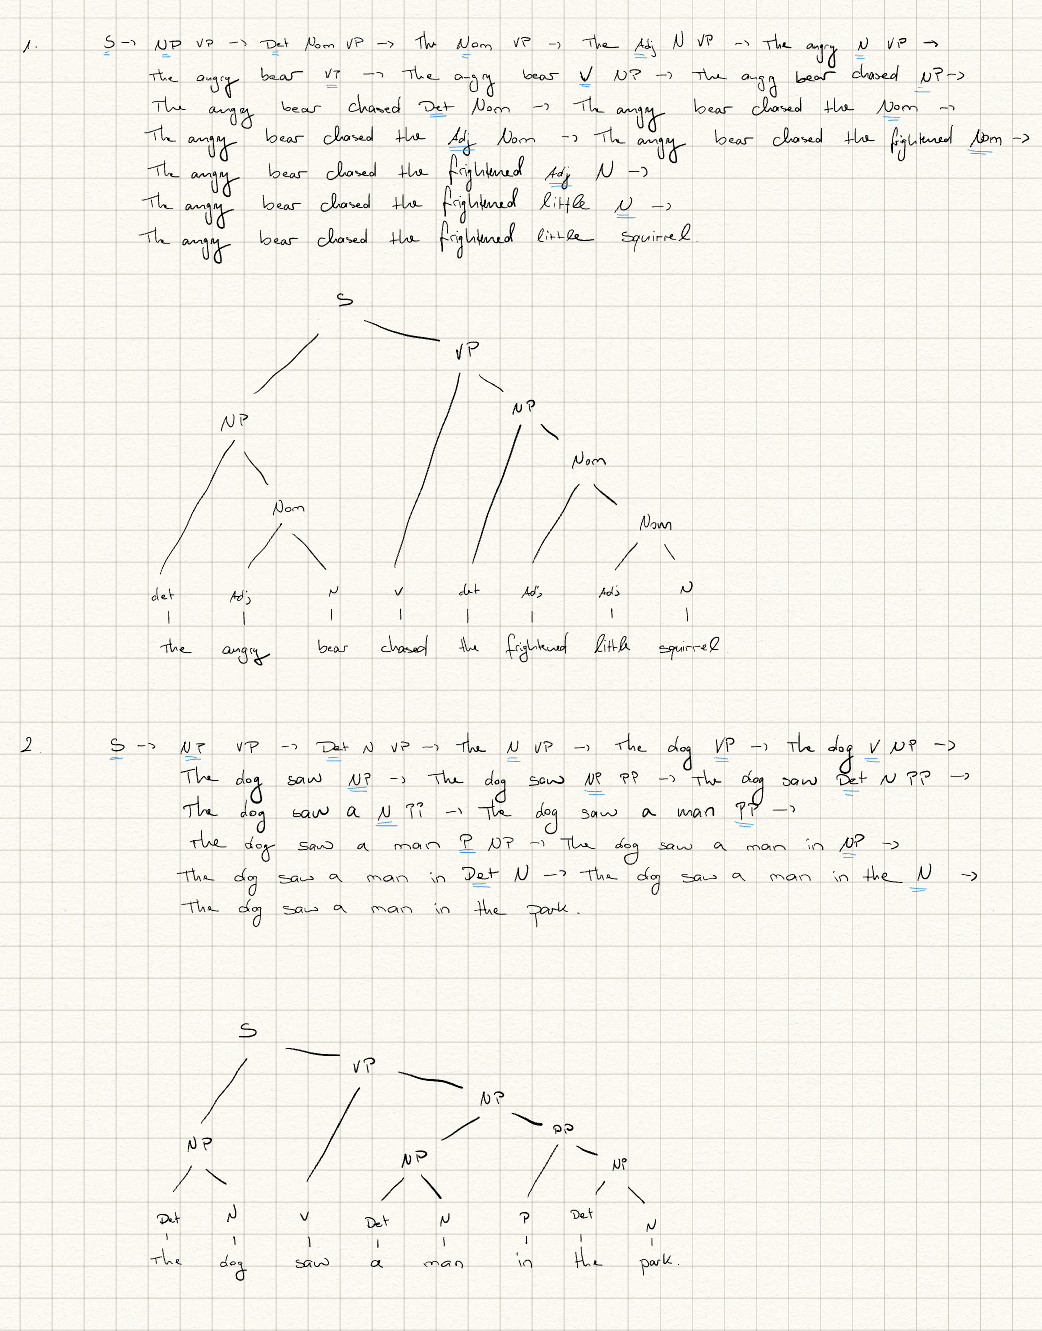 1. S -> NP VP -> Det Nom VP -> The Nom VP -> The Adj N VP -> The angry N VP ->
The angry bear VP -> The angry bear V NP -> The angry bear chased NP ->
The angry bear chased Det Nom -> The angry bear chased the Nom ->
The angry bear chased the Adj Nom -> The angry bear chased the frightened Nom ->
The angry bear chased the frightened Adj N ->
The angry bear chased the frightened little N ->
The angry bear chased the frightened little squirrel.
S
VP
NP
NP
Nom
Nom
Nom
det Adj N V det Adj Adj N
The angry bear chased the frightened little squirrel
2. S -> NP VP -> Det N VP -> The N VP -> The dog VP -> The dog V NP ->
The dog saw NP -> The dog saw NP PP -> The dog saw Det N PP ->
The dog saw a N PP -> The dog saw a man PP ->
The dog saw a man P NP -> The dog saw a man in NP ->
The dog saw a man in Det N -> The dog saw a man in the N ->
The dog saw a man in the park.
S
VP
NP
PP
NP
NP
NP
Det N V Det N P Det N
The dog saw a man in the park.